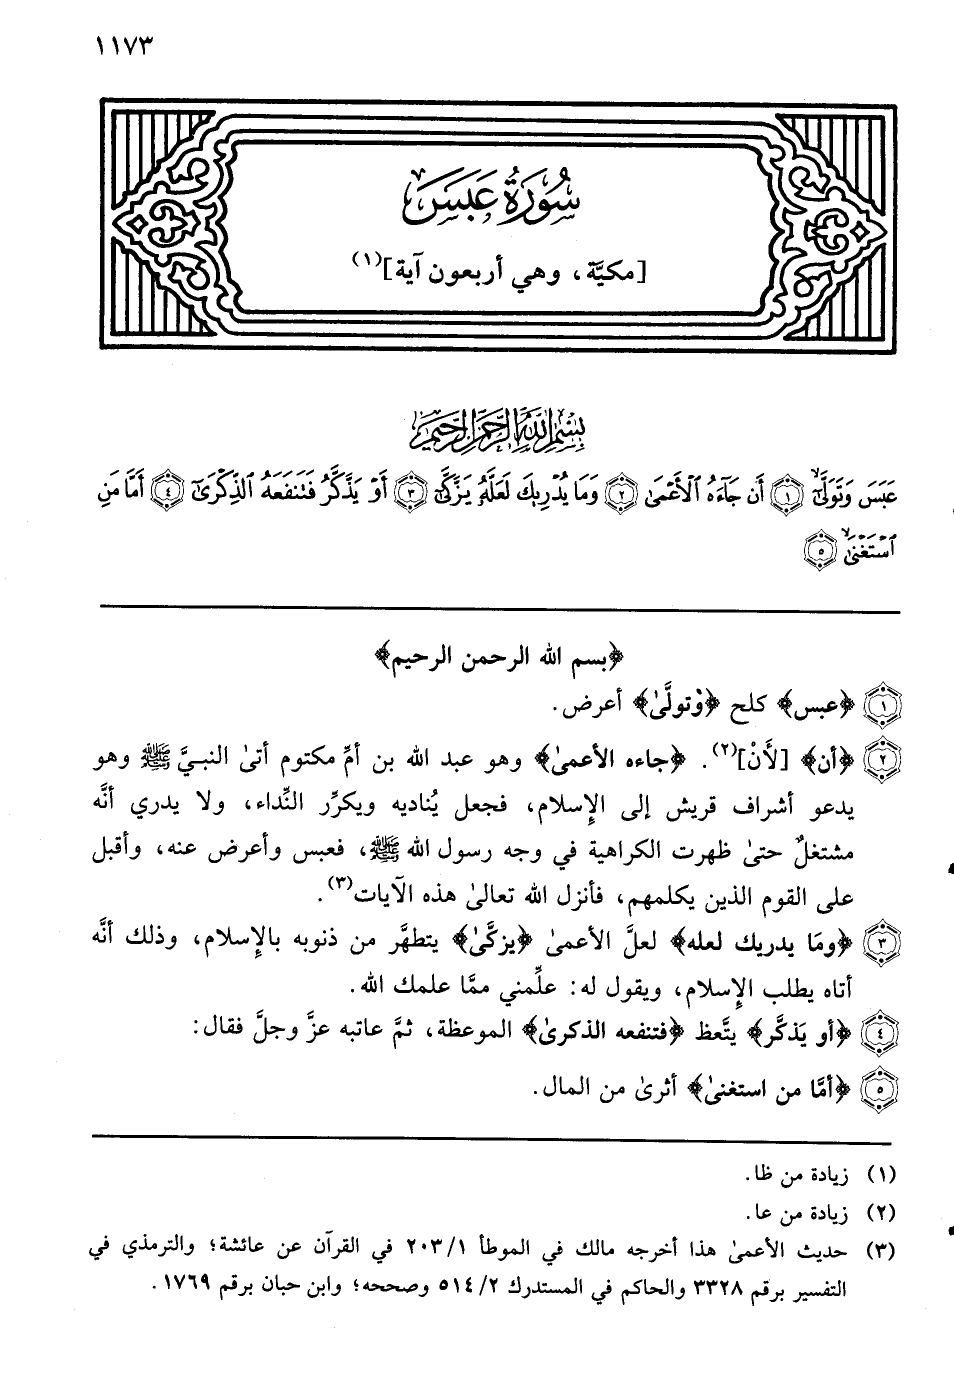 ١١٧٣
سُورَةُ عَبَسَ
[مكيَّة، وهي أربعون آية](١)
بِسْمِ اللَّهِ الرَّحْمَٰنِ الرَّحِيمِ
عَبَسَ وَتَوَلَّىٰٓ ۙ ١ أَن جَآءَهُ ٱلْأَعْمَىٰ ٢ وَمَا يُدْرِيكَ لَعَلَّهُۥ يَزَّكَّىٰٓ ٣ أَوْ يَذَّكَّرُ فَتَنفَعَهُ ٱلذِّكْرَىٰٓ ٤ أَمَّا مَنِ
ٱسْتَغْنَىٰ ۙ ٥
﴿بسم الله الرحمن الرحيم﴾
١ ﴿عبس﴾ كلح ﴿وَتولَّىٰ﴾ أعرض.
٢ ﴿أن﴾ [لأَنْ](٢). ﴿جاءه الأعمىٰ﴾ وهو عبد الله بن أمِّ مكتوم أتىٰ النبيَّ ﷺ وهو
يدعو أشراف قريش إلى الإسلام، فجعل يُناديه ويكرِّر النِّداء، ولا يدري أنَّه
مشتغلٌ حتىٰ ظهرت الكراهية في وجه رسول الله ﷺ، فعبس وأعرض عنه، وأقبل
على القوم الذين يكلمهم، فأنزل الله تعالىٰ هذه الآيات(٣).
٣ ﴿ومَا يدريك لعله﴾ لعلَّ الأعمىٰ ﴿يزكَّىٰ﴾ يتطهَّر من ذنوبه بالإسلام، وذلك أنَّه
أتاه يطلب الإسلام، ويقول له: علِّمني ممَّا علمك الله.
٤ ﴿أو يَذكَّر﴾ يتَّعظ ﴿فتنفعه الذكرىٰ﴾ الموعظة، ثمَّ عاتبه عزَّ وجلَّ فقال:
٥ ﴿أمَّا من استغنىٰ﴾ أثرىٰ من المال.
(١) زيادة من ظا.
(٢) زيادة من عا.
(٣) حديث الأعمىٰ هذا أخرجه مالك في الموطأ ٢٠٣/١ في القرآن عن عائشة؛ والترمذي في
التفسير برقم ٣٣٢٨ والحاكم في المستدرك ٥١٤/٢ وصححه؛ وابن حبان برقم ١٧٦٩.